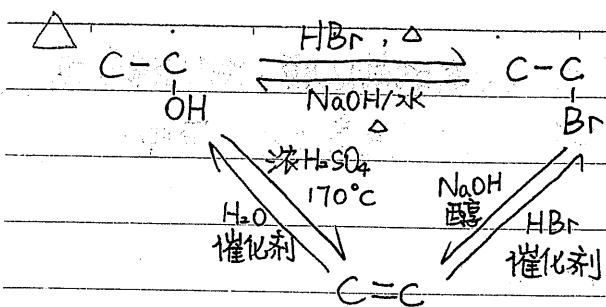 HBr, △
C-C
OH
C-C
Br
NaOH/水
△
浓H₂SO₄
170°C
H₂O
催化剂
NaOH
醇
HBr
催化剂
C=C